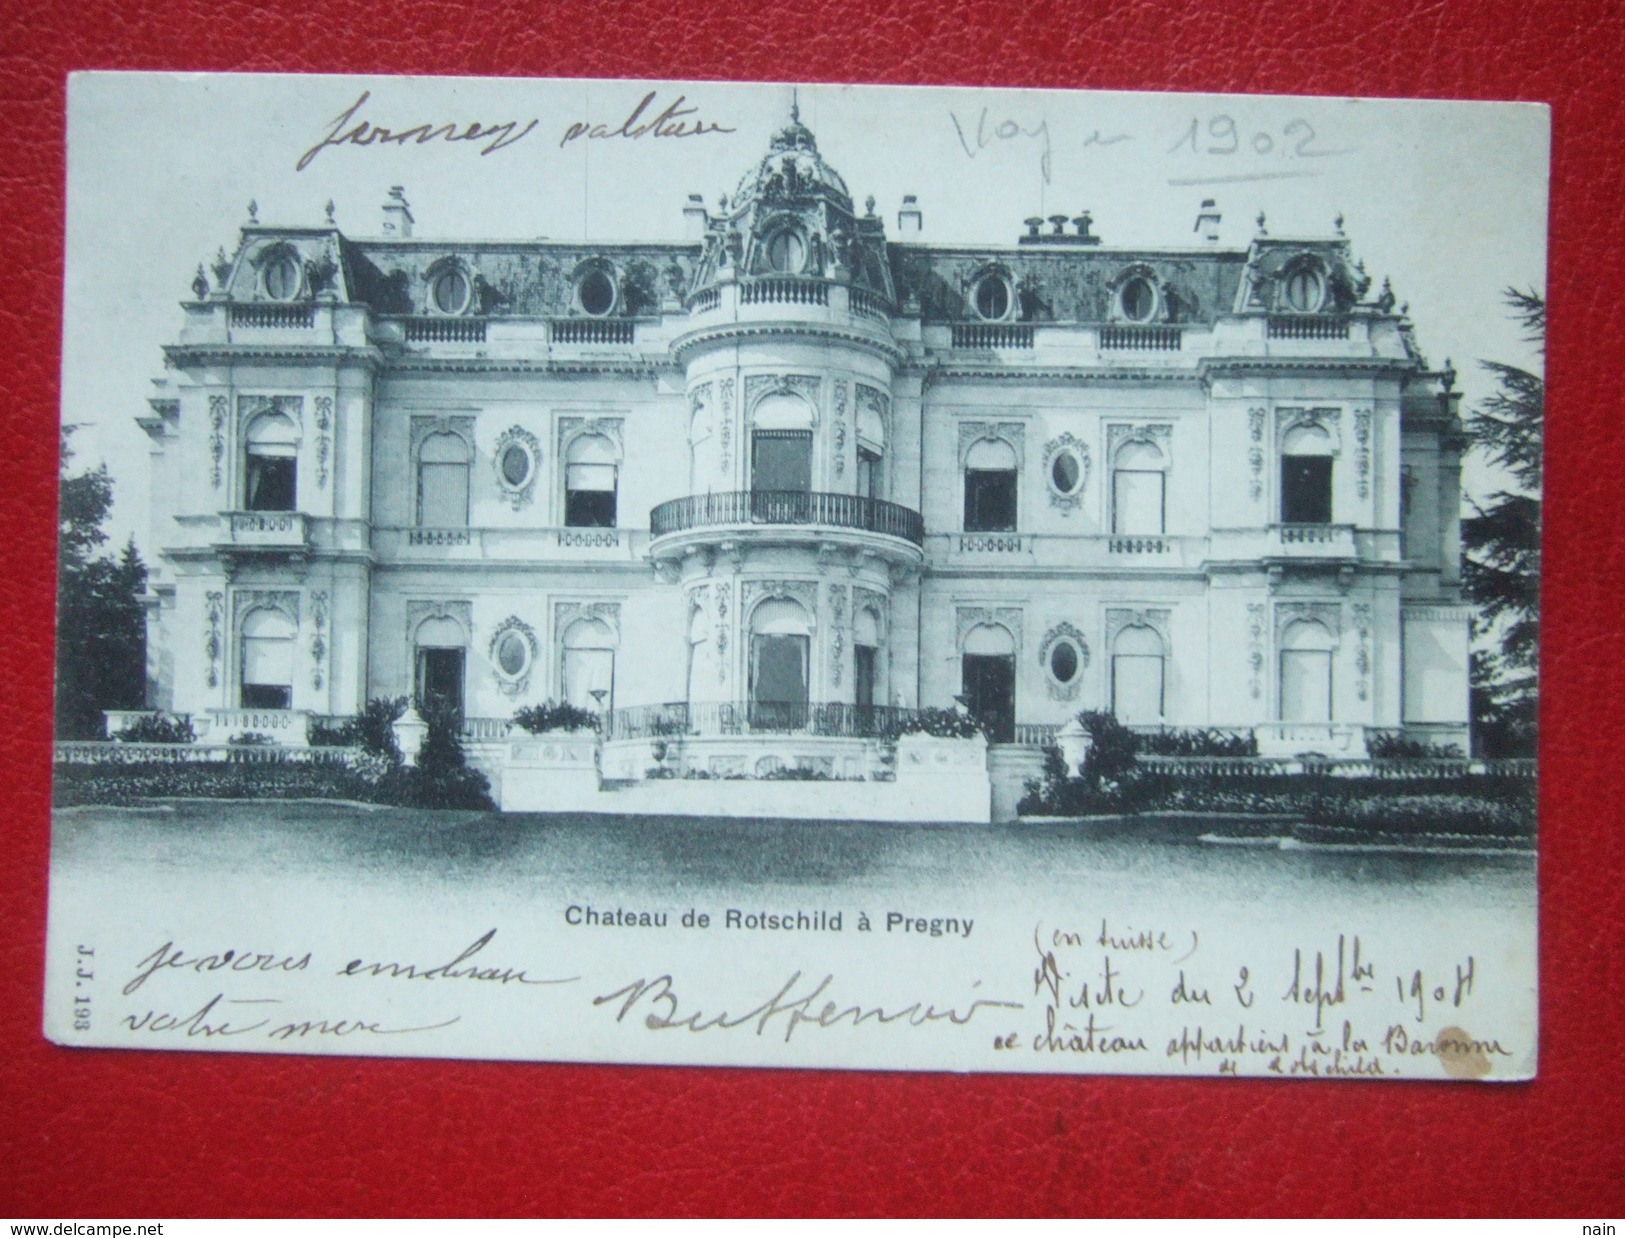 fermey valsture
Voy en 1902
Chateau de Rotschild à Pregny
J.J. 193
je vous embrasse
votre mere
Buffenoir
(en Suisse)
Visite du 2 Septbre 1908
ce château appartient à la Baronne
de Rotschild.
www.delcampe.net
nain